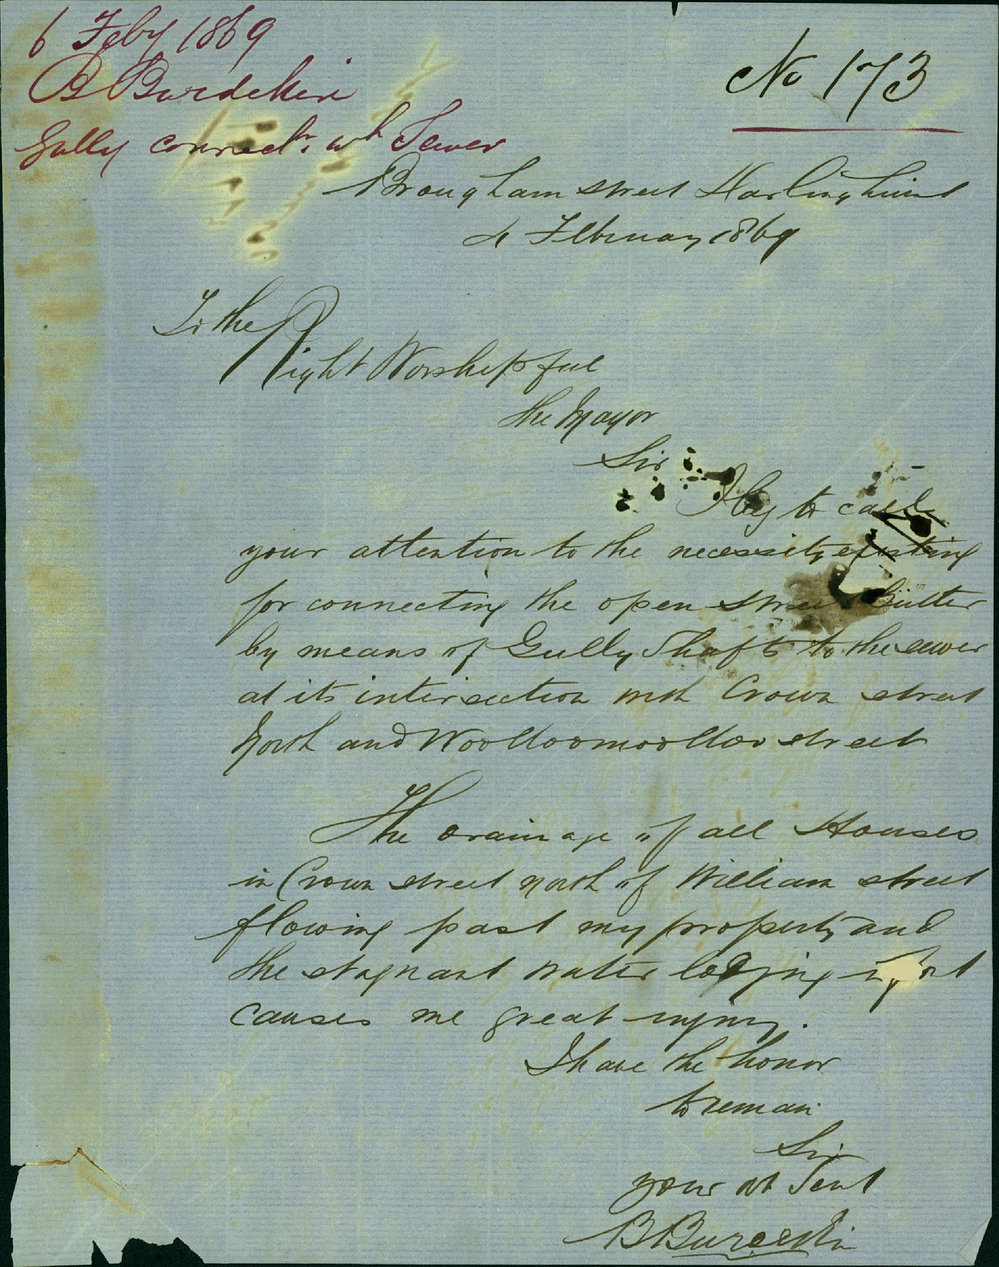 6 Feby 1869
B Burdekin
Gully connectn. wh Sewer
No 173
Brougham street Darlinghurst
4 February 1869
To the
Right Worshipful
the Mayor
Sir
I beg to call
your attention to the necessity existing
for connecting the open street Gutter
by means of Gully Shaft to the sewer
at its intersection with Crown street
North and Woolloomoolloo street
The drainage of all Houses
in Crown street north of William street
flowing past my property and
the stagnant water lodging in front
causes me great injury.
I have the honor
to remain
Sir
your ob Sert
B Burdekin